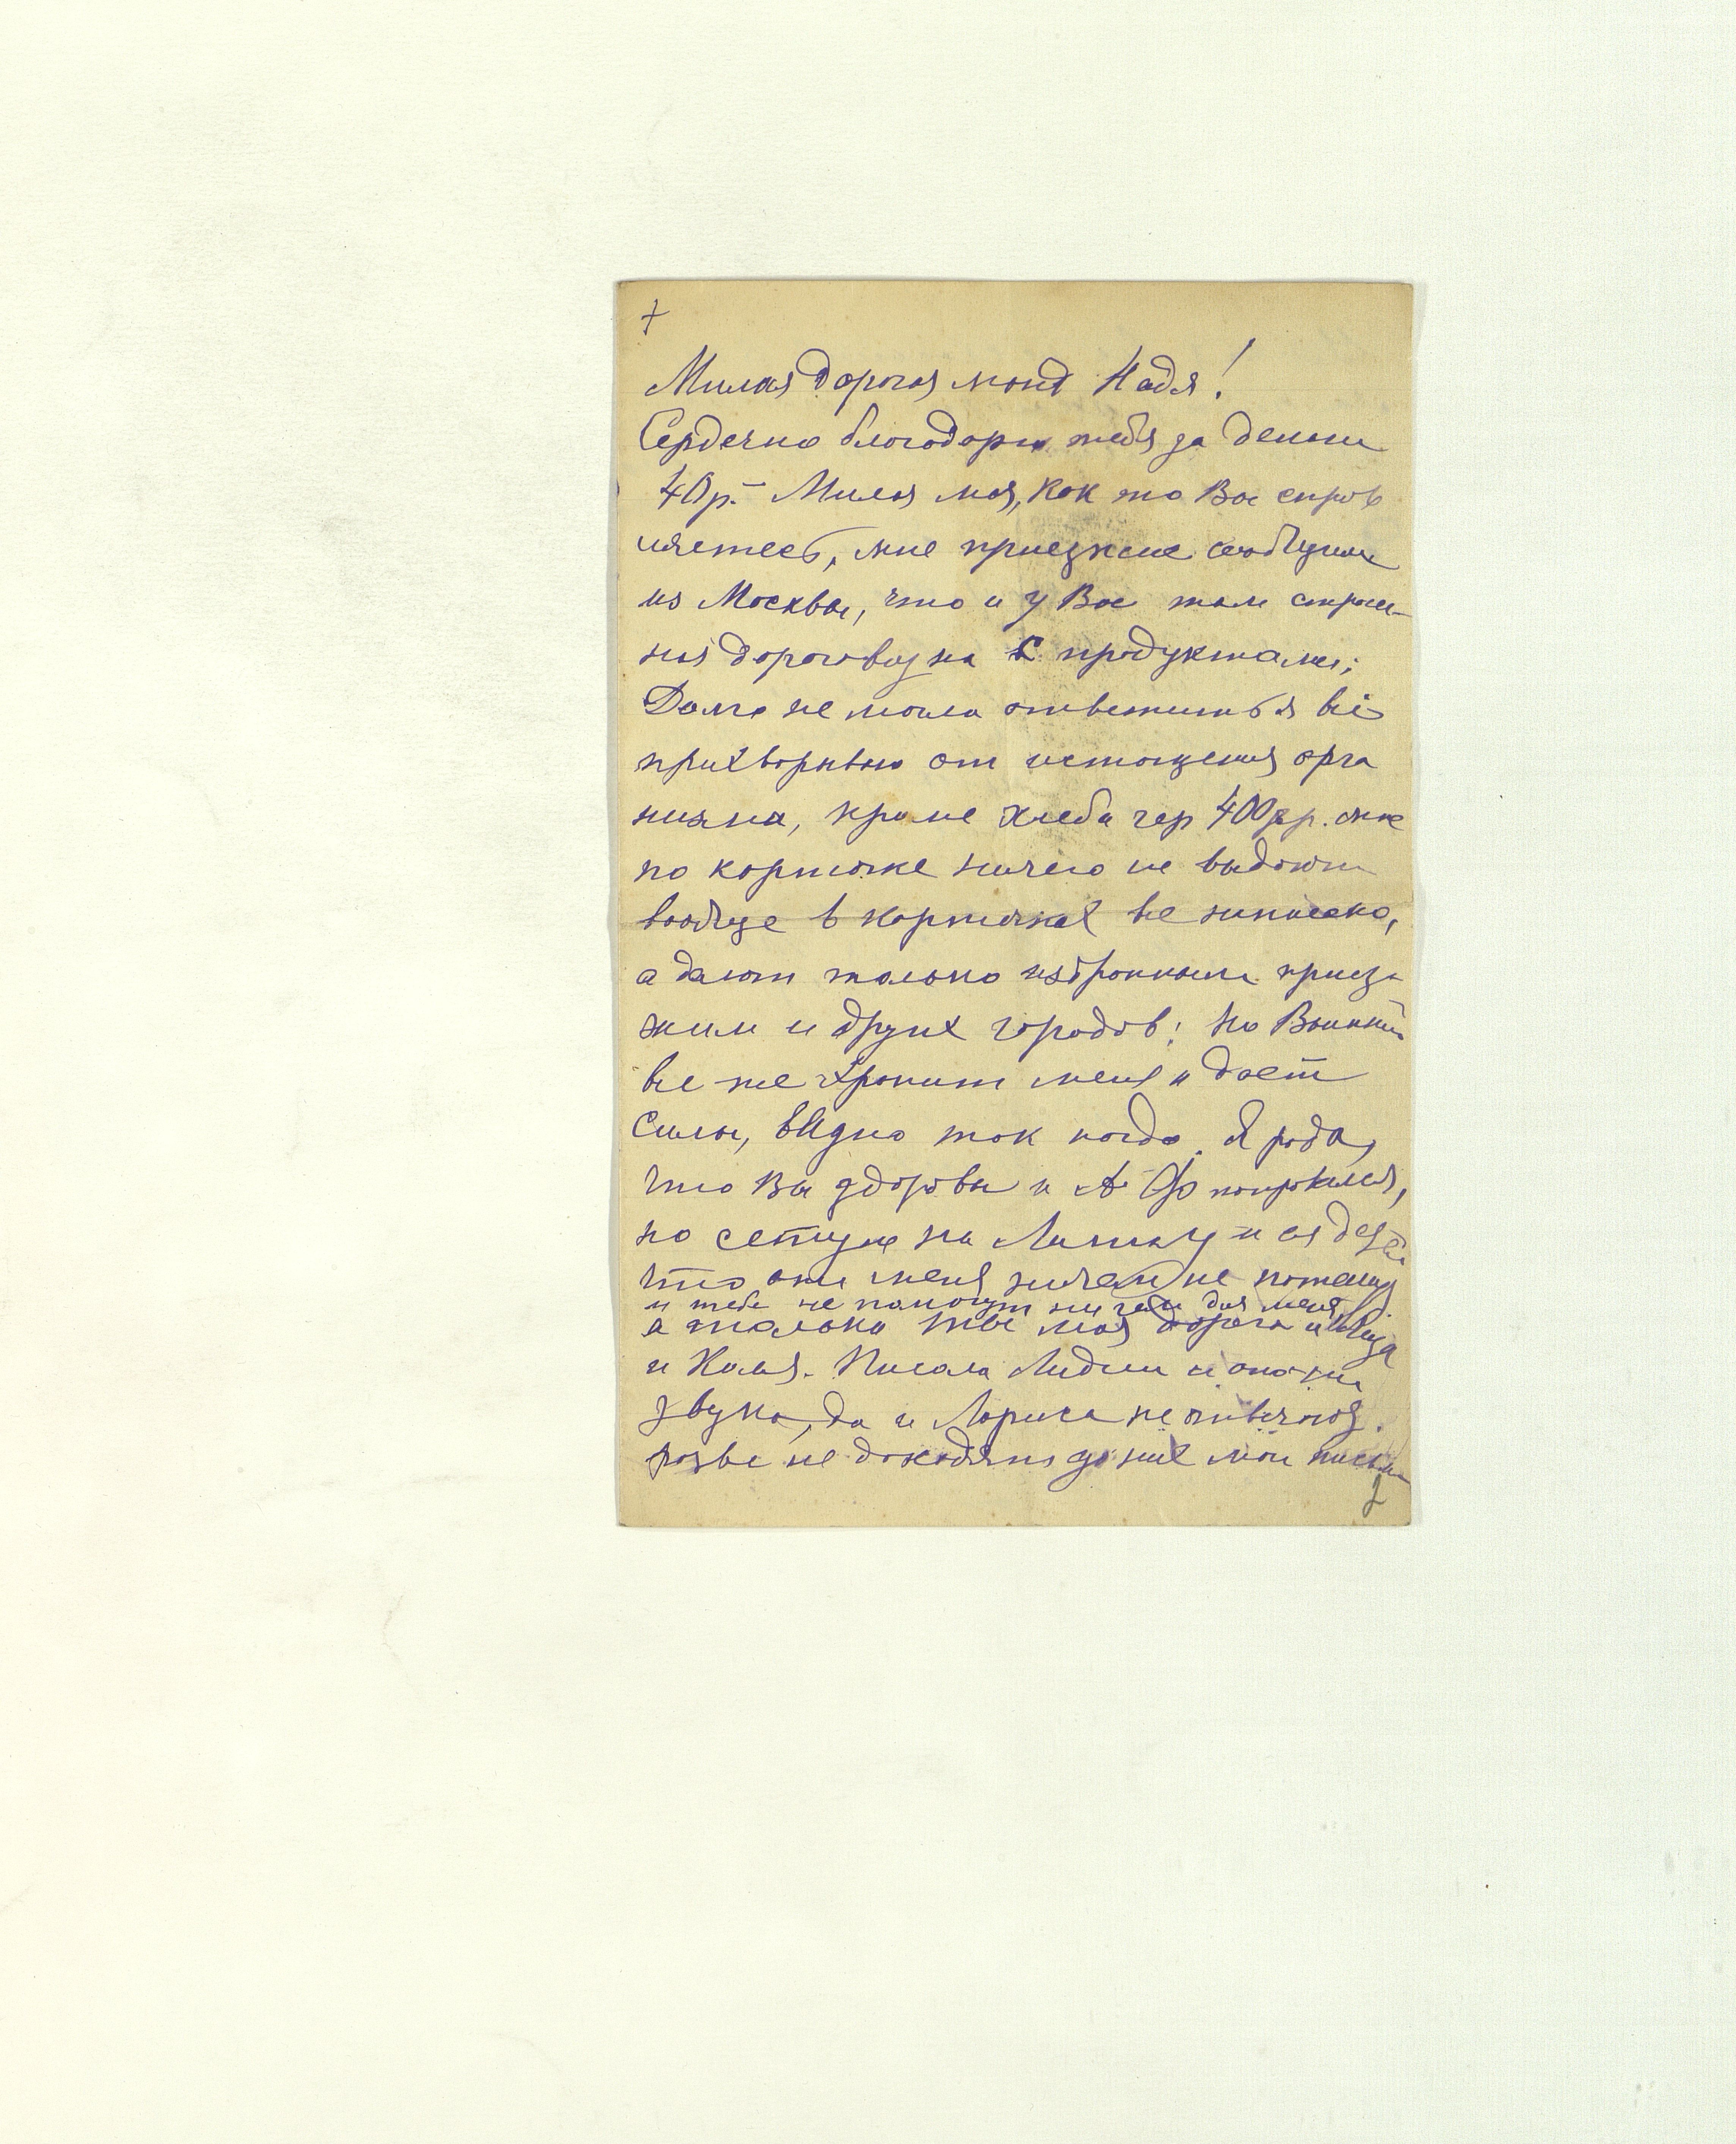 +
Милая дорогая моя Надя!
Сердечно благодарю тебя за деньги
40 р. – Милая моя, как то Вы справ
ляетесь, мне приезжие сообщили
из Москвы, что и у Вас там страш-
ная дороговизна с продуктами;
Долго не могла ответить я всё
прихворываю от истощения орга
низма, кроме хлеба чер 400 гр. мне
по карточке ничего не выдают
вообще в карточках не написано,
а дают только избранным приез
жим и других городов; но
все же хранит меня и дает
силы, видно так надо. Я рада,
что Вы здоровы и А Ф поправился,
но сетую на и ея детей
что они меня ничем не
и тебе не помогут ни чем для меня
а только ты моя дорогая и Лиза
и Коля. Писала Лидии и она ни
звука, да и Лариса не отвечают.
разве не доходят до них мои письма
2